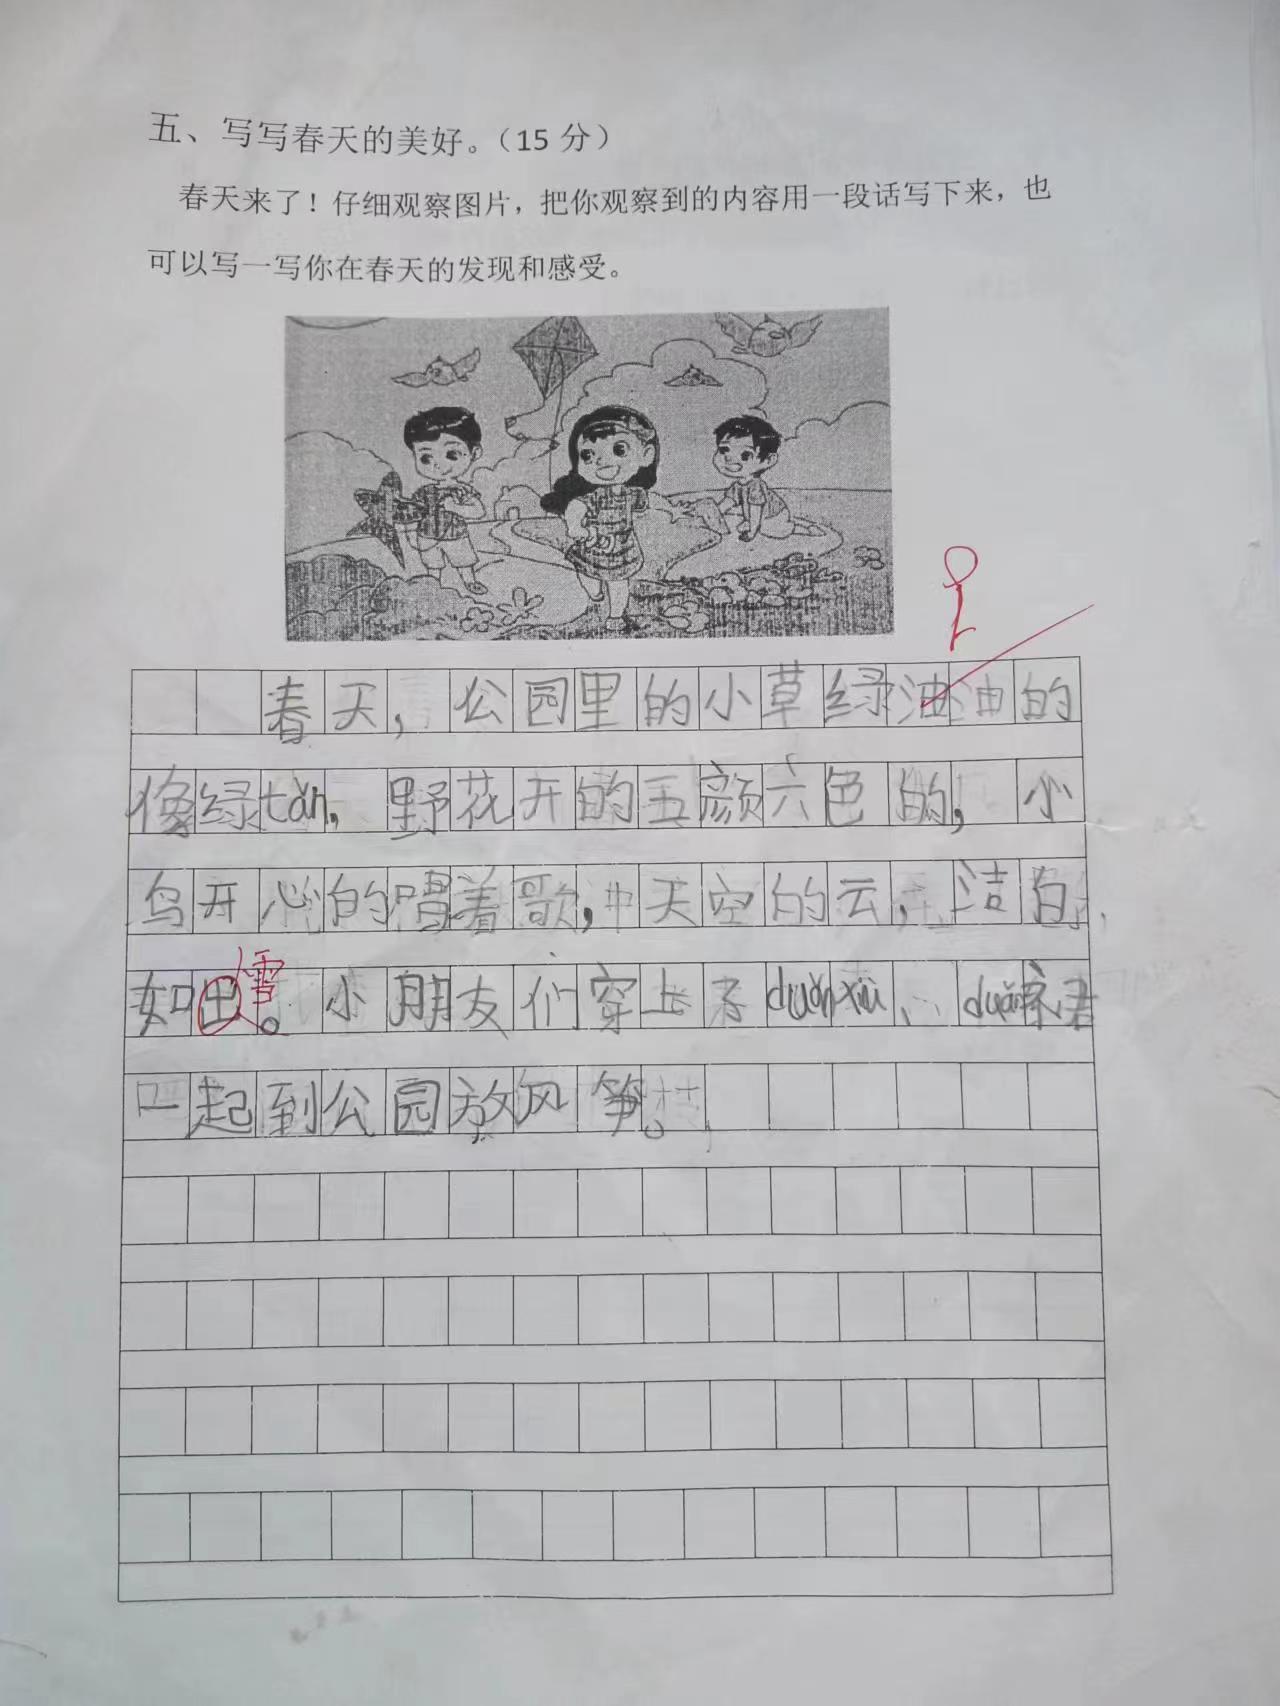 五、写写春天的美好。（15 分）
春天来了！仔细观察图片，把你观察到的内容用一段话写下来，也
可以写一写你在春天的发现和感受。
春天，公园里的小草绿油油的
像绿tǎn，野花开的五颜六色的，小
鸟开心的唱着歌，天空的云，洁白
如出。雪
小朋友们穿上了duǎnxiù、duǎn
一起到公园放风筝。